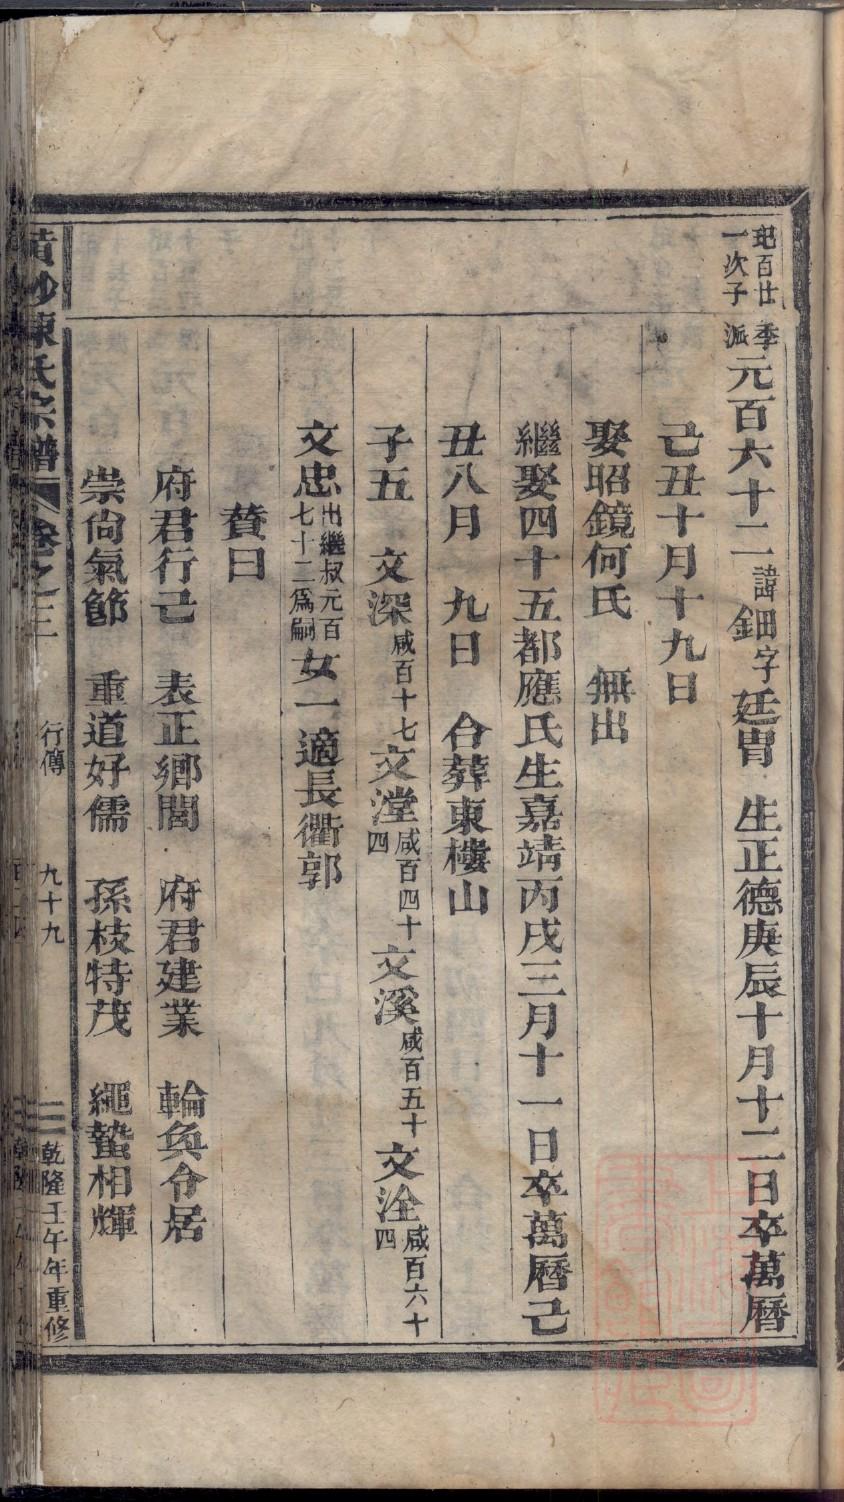 玘百廿一次子
季派元百六十二諱鈿字廷胄 生正德庚辰十月十二日卒萬曆
己丑十月十九日
娶昭鏡何氏 無出
繼娶四十五都應氏生嘉靖丙戌三月十一日卒萬曆己
丑八月 九日 合葬東樓山
子五 文深咸百十七文漟咸百四十四 文溪咸百五十 文洤咸百六十四
文忠出繼叔元百七十二爲嗣 女一適長衢郭
贊曰
府君行己 表正鄉閭 府君建業 輪奐令居
崇尙氣節 重道好儒 孫枝特茂 繩蟄相輝
黃沙陳氏宗譜 卷之三 行傳 九十九 乾隆壬午年重修